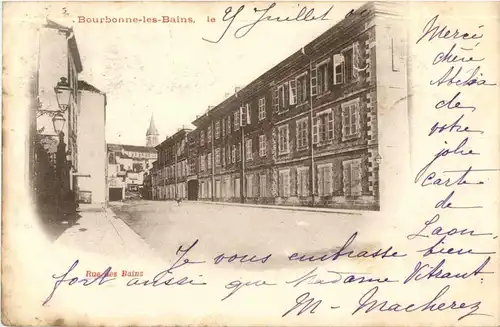 Bourbonne-les-Bains, le 25 Juillet
Merci
chère
de
votre
jolie
Carte
de
Laon
Je vous embrasse bien
fort aussi que Madame Vitrant
Rue des Bains
M. Macherez